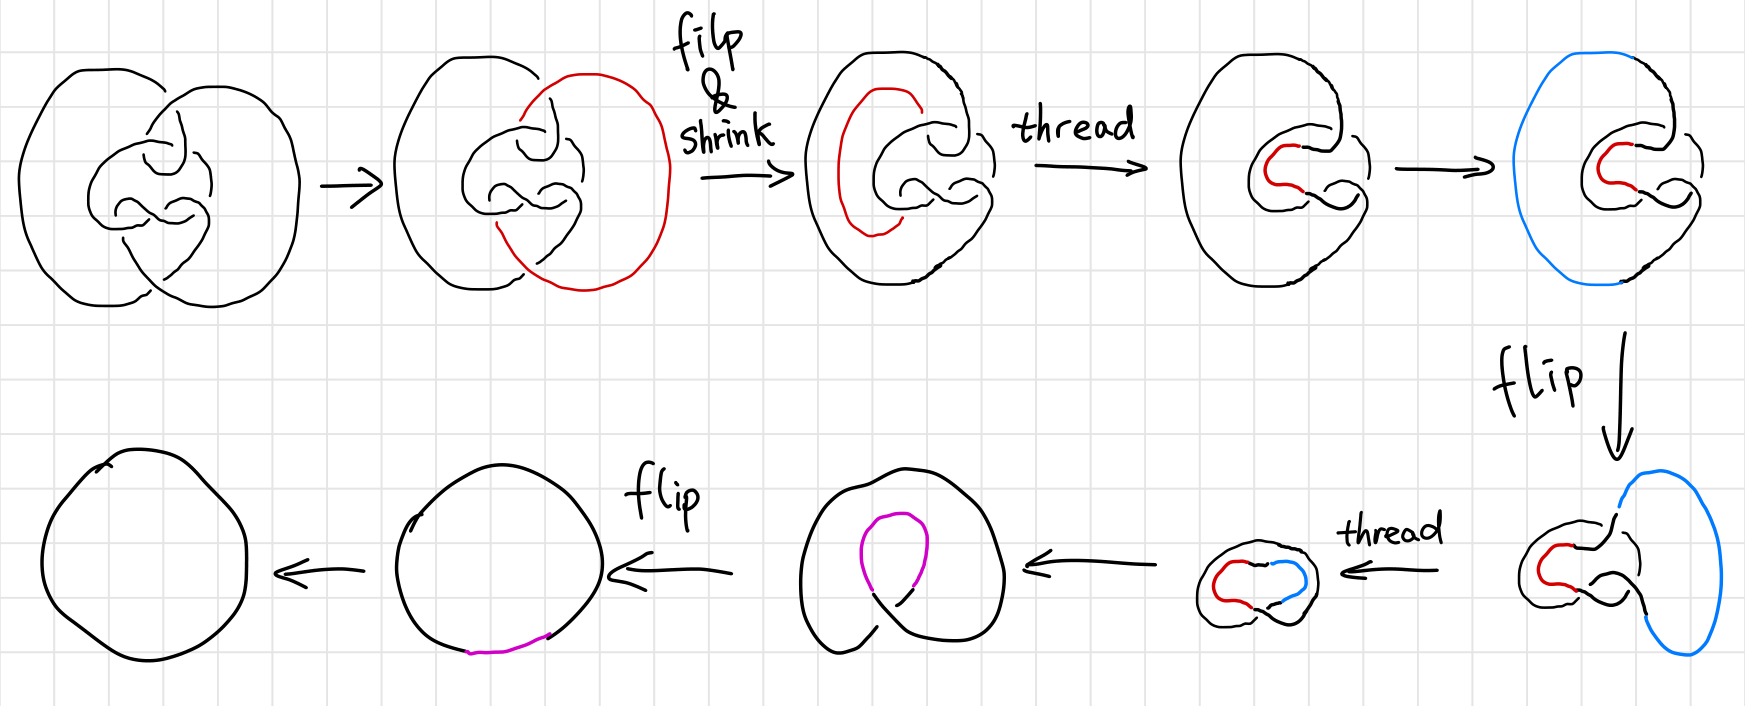 filp
&
shrink
thread
flip
thread
flip